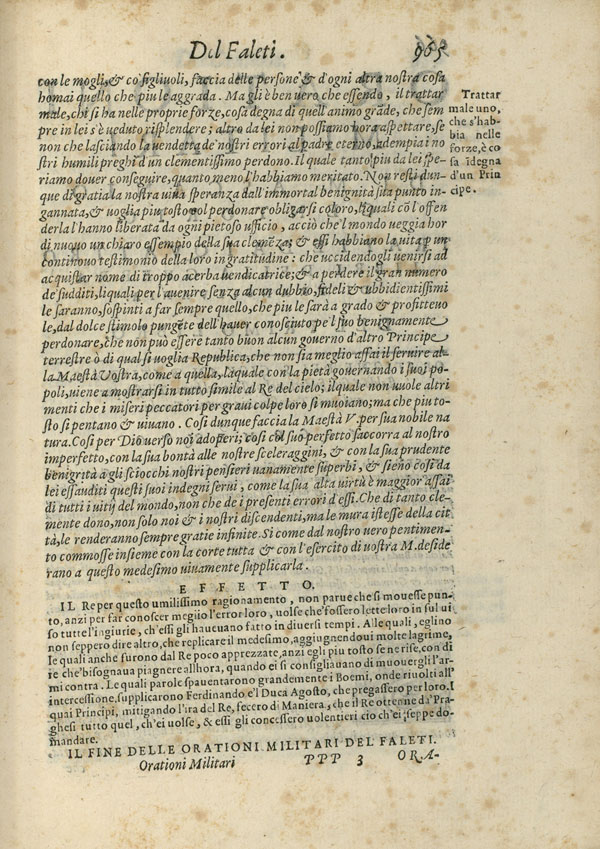 Del Faleti. 965
con le mogli, & co' figliuoli, faccia delle persone & d'ogni altra nostra cosa
homai quello che piu le aggrada. Ma gli è ben uero che essendo, il trattar
male, chi si ha nelle proprie forze, cosa degna di quell'animo grāde, che sem
pre in lei s'è ueduto risplendere; altro da lei non possiamo hora aspettare, se
non che lasciando la uendetta de' nostri errori al padre eterno, adempia i no
stri humili preghi d'un clementissimo perdono. Il quale tanto piu da lei spe-
riamo douer conseguire, quanto meno l'habbiamo meritato. Non resti dun-
que di gratia la nostra uiua speranza dall'immortal benignità sua punto in-
gannata, & uoglia piu tosto col perdonare obligarsi coloro, liquali cō l'offen
derla l'hanno liberata da ogni pietoso ufficio, acciò che'l mondo ueggia hor
di nuouo un chiaro essempio della sua clemēza; & essi habbiano la uita p un
continouo testimonio della loro ingratitudine: che uccidendogli uenirsi ad
acquistar nome di troppo acerba uendicatrice; & a perdere il gran numero
de' sudditi, liquali per l'auenire senza alcun dubbio, fideli & ubbidientissimi
le saranno, sospinti a far sempre quello, che piu le sarà a grado & profitteuo
le, dal dolce stimolo pungēte dell'hauer conosciuto pe'l suo benignamente
perdonare, che non può essere tanto buon alcun gouerno d'altro Principe
terrestre ò di qual si uoglia Republica, che non sia meglio assai il seruire al-
la Maestà Vostra, come a quella, laquale con la pietà gouernando i suoi po-
poli, uiene a mostrarsi in tutto simile al Re del cielo; ilquale non uuole altri
menti che i miseri peccatori per graui colpe loro si muoiano; ma che piu to-
sto si pentano & uiuano. Cosi dunque faccia la Maestà V. per sua nobile na
tura. Cosi per Dio uerso noi adoperi; cosi col suo perfetto saccorra al nostro
imperfetto, con la sua bontà alle nostre sceleraggini, & con la sua prudente
benignità a gli sciocchi nostri pensieri uanamente superbi, & sieno cosi da
lei essauditi questi suoi indegni serui, come la sua alta uirtù è maggior assai
di tutti i uitij del mondo, non che de i presenti errori d'essi. Che di tanto cle-
mente dono, non solo noi & i nostri discendenti, ma le mura istesse della cit
tà, le renderanno sempre gratie infinite. Si come dal nostro uero pentimen-
to commosse insieme con la corte tutta & con l'esercito di uostra M. deside
rano a questo medesimo uiuamente supplicarla.
Trattar
male uno,
che s'hab-
bia nelle
forze, è co
sa idegna
d'un Prin
cipe.
EFFETTO.
IL Re per questo umilissimo ragionamento, non parue che si mouesse pun-
to, anzi per far conoscer meglio l'error loro, uolse che fossero lette loro in sul ui
so tutte l'ingiurie, ch'essi gli haueuano fatto in diuersi tempi. Alle quali, eglino
non seppero dire altro, che replicare il medesimo, aggiugnendoui molte lagrime,
le quali anche furono dal Re poco apprezzate, anzi egli piu tosto se ne rise, con di
re che'bisognaua piagnere allhora, quando ei si consigliauano di muouergli l'ar-
mi contra. Le quali parole spauentarono grandemente i Boemi, onde riuolti all'
intercessione, supplicarono Ferdinando e'l Duca Agosto, che pregassero per loro. I
quai Principi, mitigando l'ira del Re, fecero di Maniera, che il Re ottenne da'Pra-
ghesi tutto quel, ch'ei uolse, & essi gli concessero uolentieri ciò ch'ei seppe do-
mandare.
IL FINE DELLE ORATIONI MILITARI DEL FALETI.
Orationi Militari PPP 3 ORA-